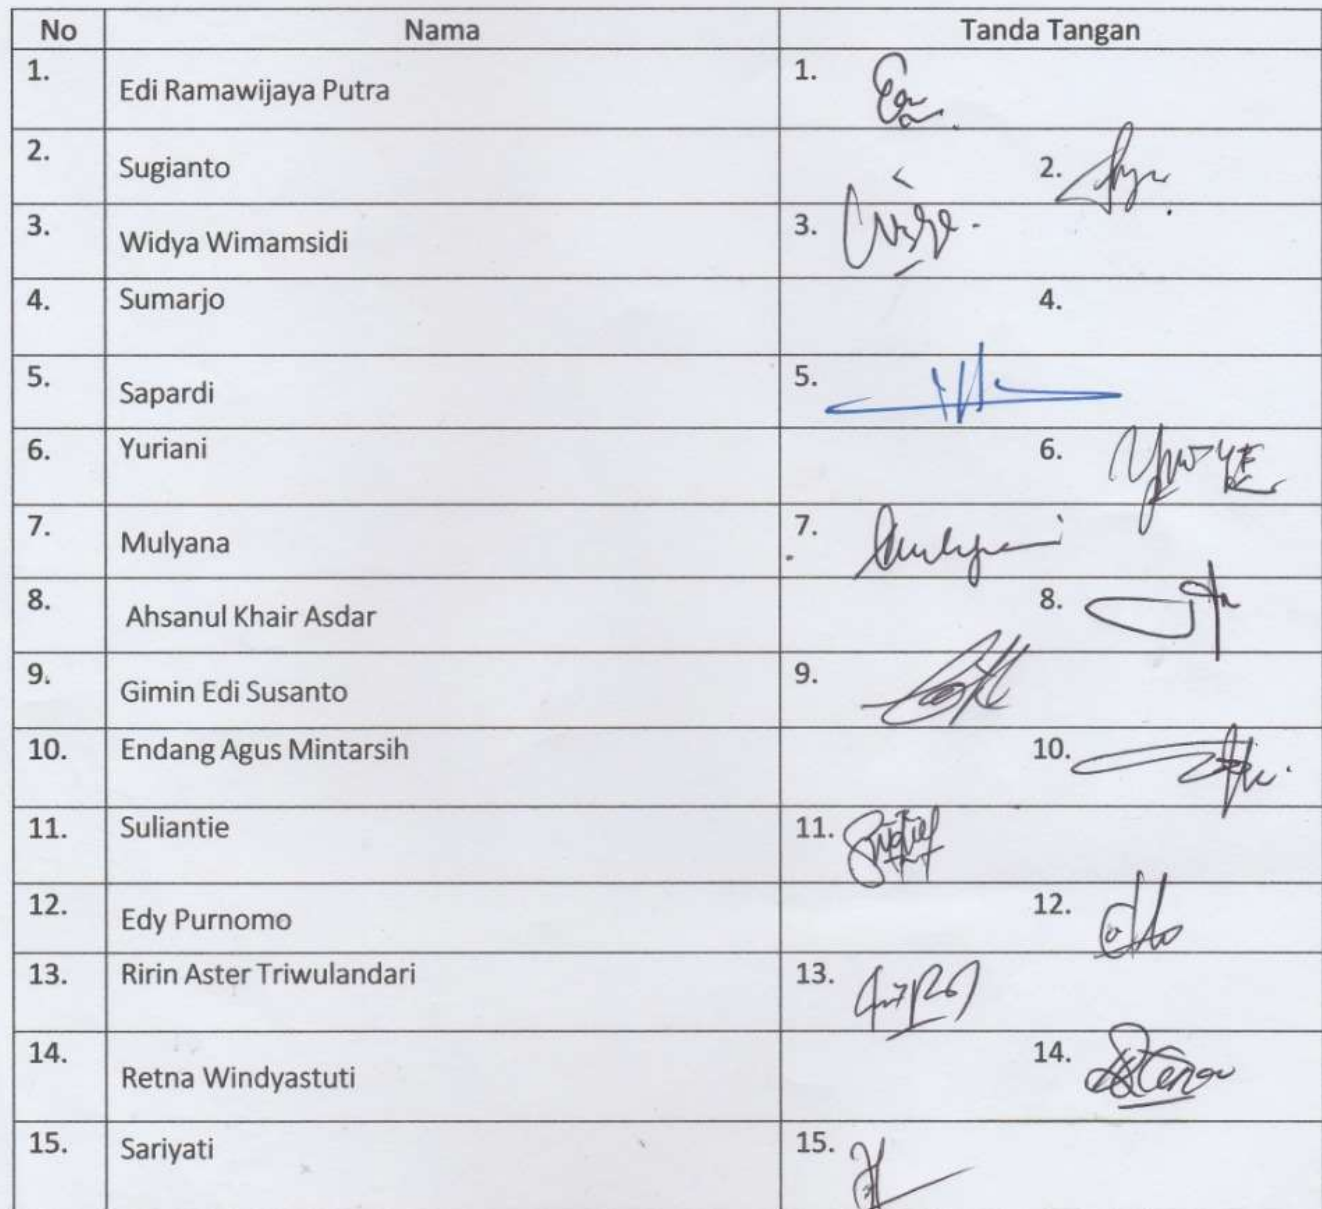 No Nama Tanda Tangan
1. Edi Ramawijaya Putra 1.
2. Sugianto 2.
3. Widya Wimamsidi 3.
4. Sumarjo 4.
5. Sapardi 5.
6. Yuriani 6.
7. Mulyana 7.
8. Ahsanul Khair Asdar 8.
9. Gimin Edi Susanto 9.
10. Endang Agus Mintarsih 10.
11. Suliantie 11.
12. Edy Purnomo 12.
13. Ririn Aster Triwulandari 13.
14. Retna Windyastuti 14.
15. Sariyati 15.